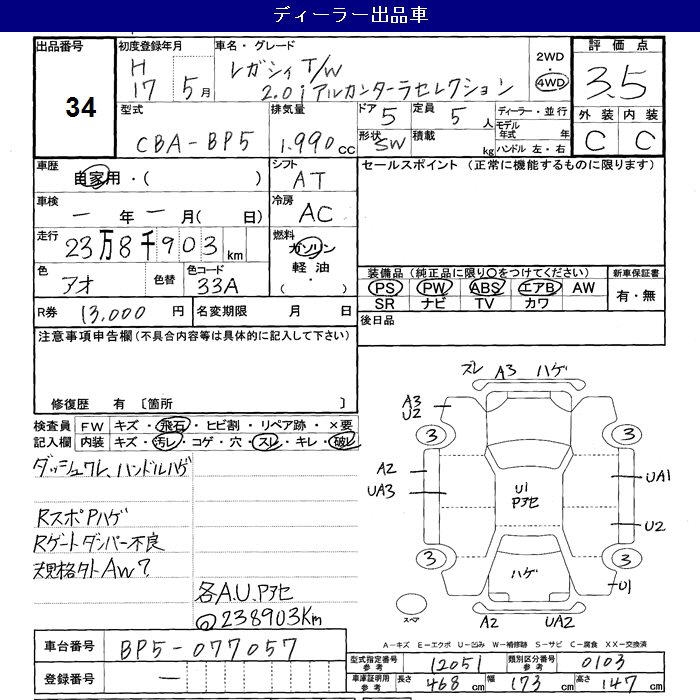 ディーラー出品車
出品番号
34
初度登録年月
H
17年 5月
車名・グレード
レガシィ T/W
2.0i アルカンターラセレクション
2WD
・
4WD
評価点
3.5
外装 内装
C C
型式
CBA-BP5
排気量
1.990cc
ドア
5
定員
5人
形状
SW
積載
kg
ディーラー・並行
モデル年式 年
ハンドル 左・右
車歴
自家用・( )
シフト
AT
セールスポイント(正常に機能するものに限ります)
車検
一年一月( 日)
冷房
AC
走行
23万8千903km
燃料
ガソリン
軽油
( ・ )
色
アオ
色替
色コード
33A
装備品(純正品に限り○をつけてください)
PS PW ABS エアB AW
SR ナビ TV カワ
新車保証書
有・無
R券 13,000円
名変期限 月 日
後日品
注意事項申告欄(不具合内容等は具体的に記入して下さい)
修復歴 有 〔箇所 〕
検査員記入欄
FW キズ・飛石・ヒビ割・リペア跡・×要
内装 キズ・汚レ・コゲ・穴・スレ・キレ・破レ
ダッシュワレ、ハンドルハゲ
RスポPハゲ
Rゲートダンパー不良
規格外AW?
各A.U.Pアセ
238903Km
スレ A3 ハゲ
A3
U2
3 3
A2
UA3
U1
Pアセ
UA1
U2
3 3
ハゲ
U1
スペア
A2 UA2
A-キズ E-エクボ U-凹み W-補修跡 S-サビ C-腐食 XX-交換済
車台番号 BP5-077057
登録番号 一
型式指定番号 参考 12051
類別区分番号 参考 0103
車庫証明用 参考 長さ 468cm 幅 173cm 高さ 147cm